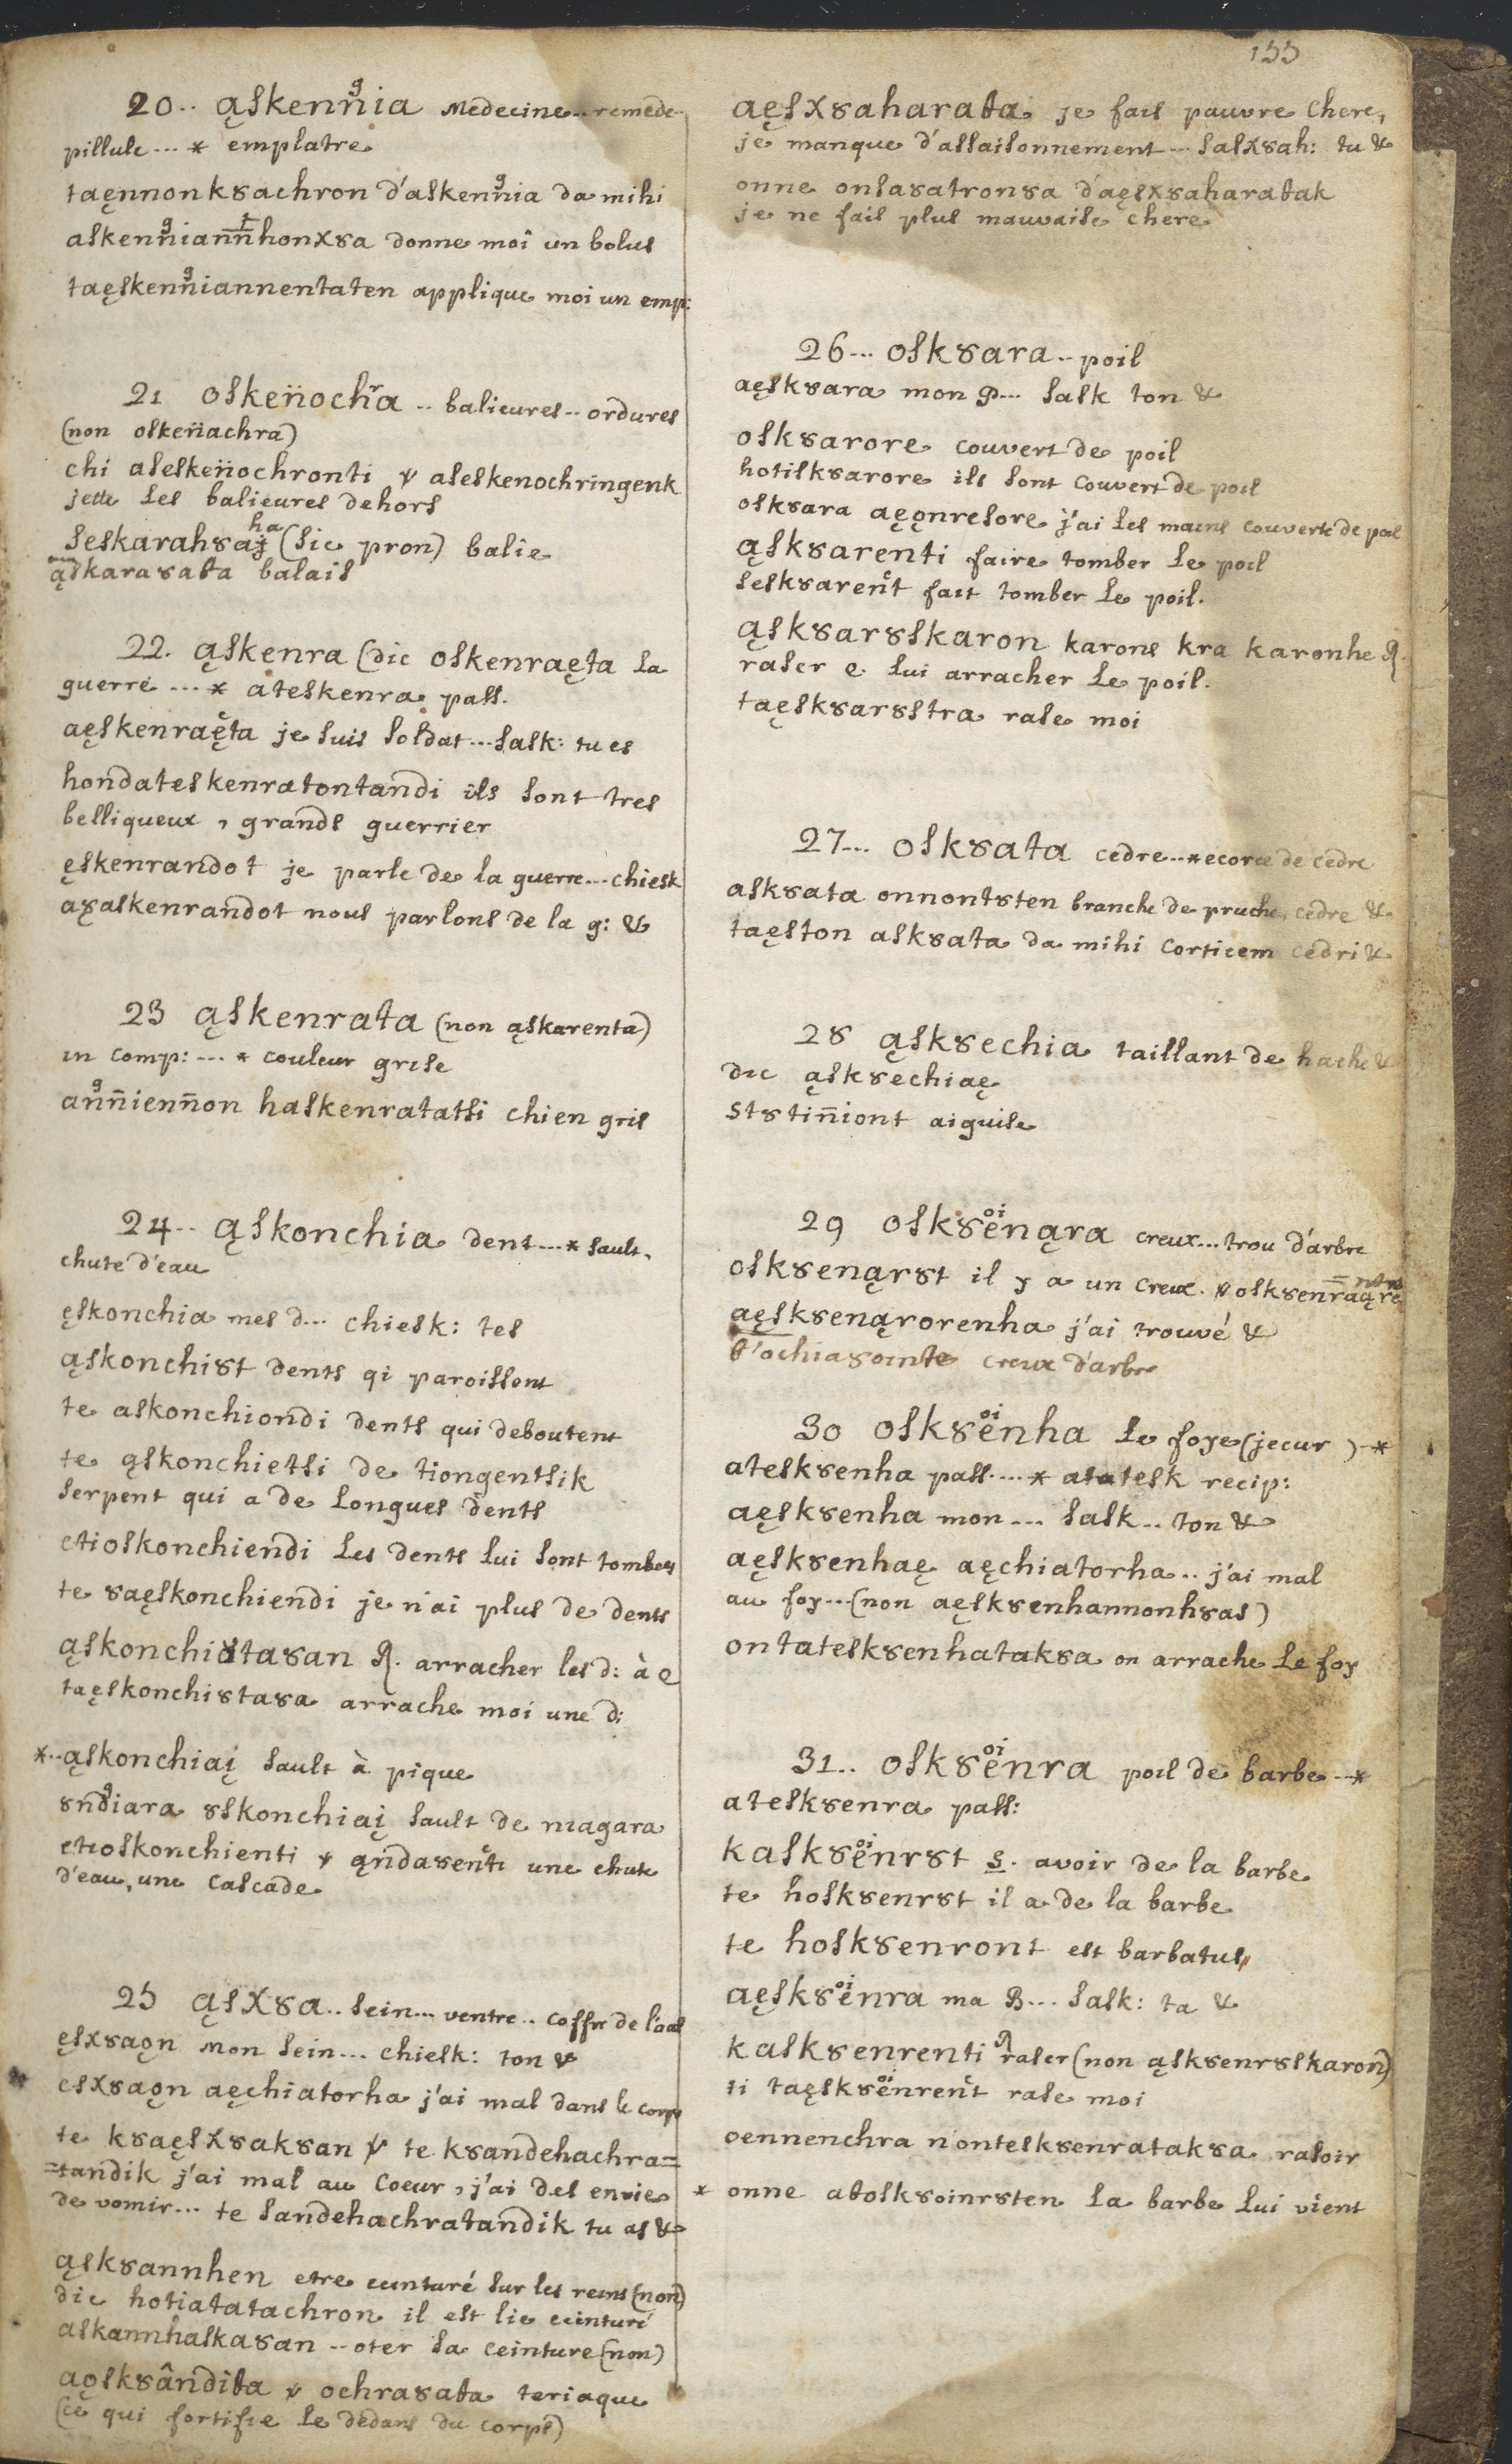 155
20.. ąskenn̈ia medecine.. remede
pillule ... * emplatre
taęnnonkȣachron d'askenn̈ia da mihi
askenn̈iann̈honxȣa donne moi un bolus
taęskenn̈iannentaten applique moi un emp:
21 osken̈ochra .. balieures .. ordures
(non osken̈achra)
chi asesken̈ochronti ѱ aseskenochringenk
jette les balieures dehors
seskarahȣa (sic pron) balie
ąskaraȣata balais
22. ąskenra (dic oskenraęta la
guerre ... * ateskenra pass.
aęskenraęta je suis soldat ... sask: tu es
hondateskenratontandi ils sont tres
belliqueux, grands guerrier
ęskenrandot je parle de la guerre ... chiesk
aȣaskenrandot nous parlons de la g: &
23 ąskenrata (non ąskarenta)
in comp: ... * couleur grise
ann̈ienn̈on haskenratatsi chien gris
24.. ąskonchia dent ... * sault,
chute d'eau
ęskonchia mes d... chiesk: tes
ąskonchiȣt dents qi paroissent
te askonchiondi dents qui deboutent
te ąskonchietsi de tiongentsik
serpent qui a de longues dents
etioskonchiendi les dents lui sont tombees
te ȣaęskonchiendi je n'ai plus de dents
ąskonchiȣtaȣan ꝶ. arracher les d: à ҽ
taęskonchiȣtaȣa arrache moi une d:
*..ąskonchiaį sault à pique
ȣndiara ȣskonchiaį sault de niagara
etioskonchienti ѱ ąndaȣenti une chute
d'eau, une cascade
25 ąsxȣa.. sein ... ventre .. coffre de l'oa
ęsxȣaǫn mon sein ... chiesk: ton &
esxȣaǫn aęchiatorha j'ai mal dans le corps
te kȣaęsxȣakȣan ѱ te kȣandehachra=
=tandik j'ai mal au coeur, j'ai des envies
de vomir ... te sandehachratandik tu as &
ąskȣannhen etre ceinturé sur les reins (non)
dic hotiatatachron il est lie ceinturé
askannhaskaȣan .. oter sa ceinture (non)
aǫskȣândita ѱ ochraȣata teriaque
(ce qui fortifie le dedans du corps)
aęsxȣaharata je fais pauvre chere,
je manque d'assaisonnement ... sasxȣah: tu &
onne onsaȣatronȣa d'aęsxȣaharatak
je ne fais plus mauvaise chere
26... oskȣara .. poil
aęskȣara mon p... sask ton &
oskȣarore couvert de poil
hotiskȣarore ils sont couvert de poil
oskȣara aęǫnresore j'ai les mains couverte de poil
ąskȣarenti faire tomber le poil
seskȣarent fait tomber le poil.
ąskȣarȣskaron karons kra karonhe ꝶ.
raser ҽ. lui arracher le poil.
taęskȣarȣstra rase moi
27... oskȣata cedre..* ecorce de cedre
askȣata onnontȣten branche de pruche, cedre &
taęston askȣata da mihi corticem cedri &
28 ąskȣechia taillant de hache &
dic ąskȣechiaę
stȣtin̈iont aiguise
29 oskȣenąra creux ... trou d'arbre
oskȣenąrȣt il y a un creux. ѱ oskȣenraąre
aęskȣenąrorenha j'ai trouvé &
t'ochiaȣointe creux d'arbre
30 oskȣenha le foye (jecur) ..*
ateskȣenha pass. ... * atatesk recip:
aęskȣenha mon ... sask .. ton &
aęskȣenhaę aęchiatorha .. j'ai mal
au foy ... (non aęskȣenhannonhȣas)
ontateskȣenhatakȣa on arrache le foy
31.. oskȣenra poil de barbe ..*
ateskȣenra pass:
kaskȣenrȣt s. avoir de la barbe
te hoskȣenrȣt il a de la barbe
te hoskȣenront est barbatus
aęskȣenra ma B... sask: ta &
kaskȣenrenti ꝶ raser (non ąskȣenrȣskaron)
ti taęskȣenrent rase moi
oennenchra n'onteskȣenratakȣa rasoir
* onne atoskȣoinrȣten la barbe lui vient